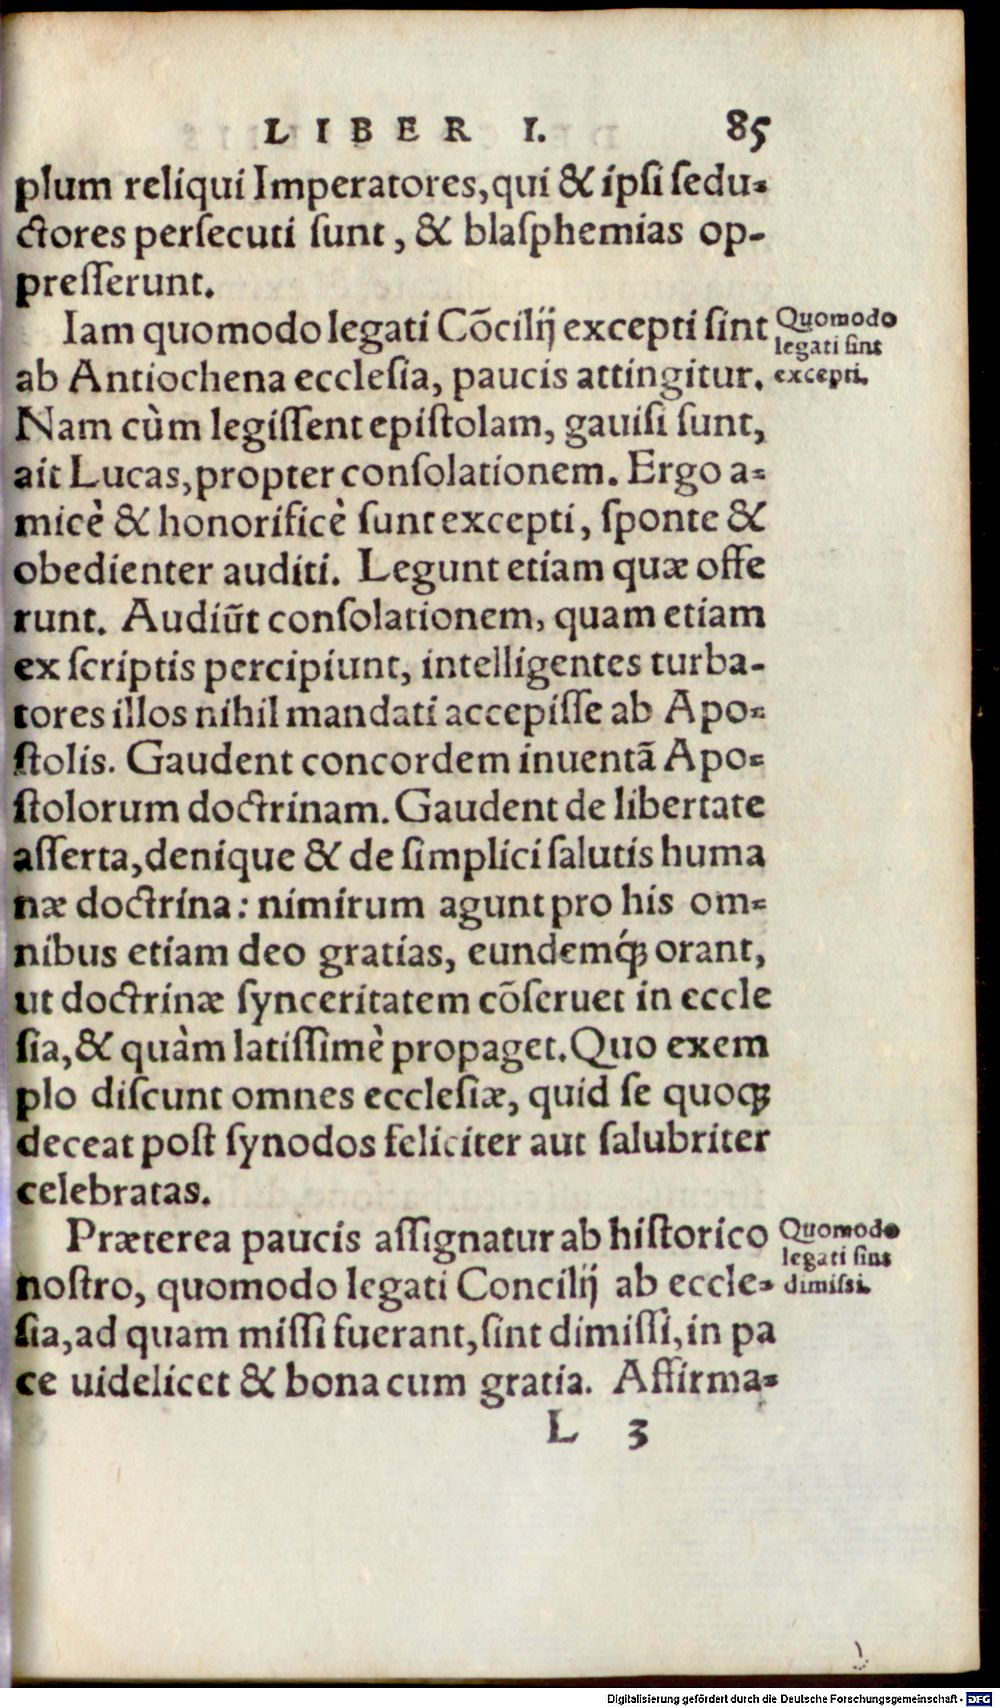 LIBER I. 85
plum reliqui Imperatores, qui & ipsi sedu-
ctores persecuti sunt, & blasphemias op-
presserunt.
Iam quomodo legati Cõcilij excepti sint
Quomodo
legati sint
excepti.
ab Antiochena ecclesia, paucis attingitur.
Nam cùm legissent epistolam, gauisi sunt,
ait Lucas, propter consolationem. Ergo a-
micè & honorificè sunt excepti, sponte &
obedienter auditi. Legunt etiam quæ offe
runt. Audiũt consolationem, quam etiam
ex scriptis percipiunt, intelligentes turba-
tores illos nihil mandati accepisse ab Apo-
stolis. Gaudent concordem inuentã Apo-
stolorum doctrinam. Gaudent de libertate
asserta, denique & de simplici salutis huma
næ doctrina: nimirum agunt pro his om-
nibus etiam deo gratias, eundemq́ꝫ orant,
ut doctrinæ synceritatem cõseruet in eccle
sia, & quàm latissimè propaget. Quo exem
plo discunt omnes ecclesiæ, quid se quoqꝫ
deceat post synodos feliciter aut salubriter
celebratas.
Præterea paucis assignatur ab historico
Quomodo
legati sint
dimissi.
nostro, quomodo legati Concilij ab eccle-
sia, ad quam missi fuerant, sint dimissi, in pa
ce uidelicet & bona cum gratia. Affirma-
L 3
Digitalisierung gefördert durch die Deutsche Forschungsgemeinschaft - DFG